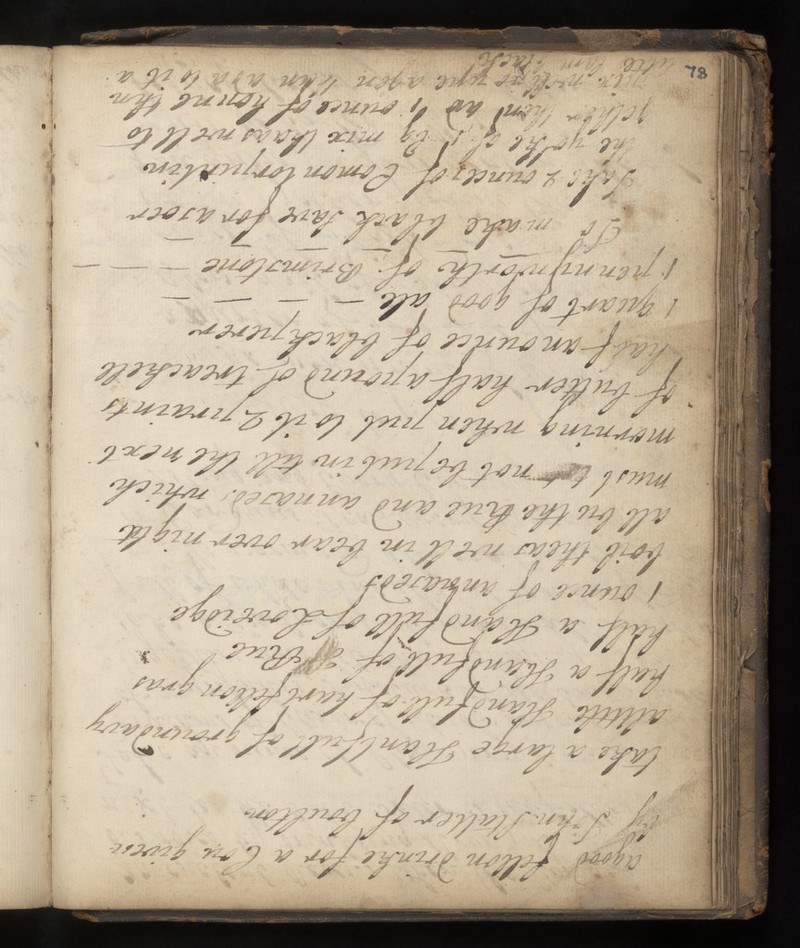 78
agood fellon drinke for a Cow given
by John Slatier of boulton
take a large Handfull of groundivy
alittle Handfull of hart fellon gras
half a Handfull of Rue
half a Handfull of Loveidge
1 ounce of annaseds
boil theas well in bear over night
all but the Rue and annaseds which
must not be put in till the next
morning when put to it 2 praints
of butter half a pound of treackell
half anounce of black peper
1 quart of good ale
1 pennyworth of Brimstone
To make black save for a soer
Take 2 ounces of Comon torpintin
the yolke of 1 Eg mix theas well to
gether then ad 1 ounce of honne then
mix well to gne agen then ad to it a
litle barm